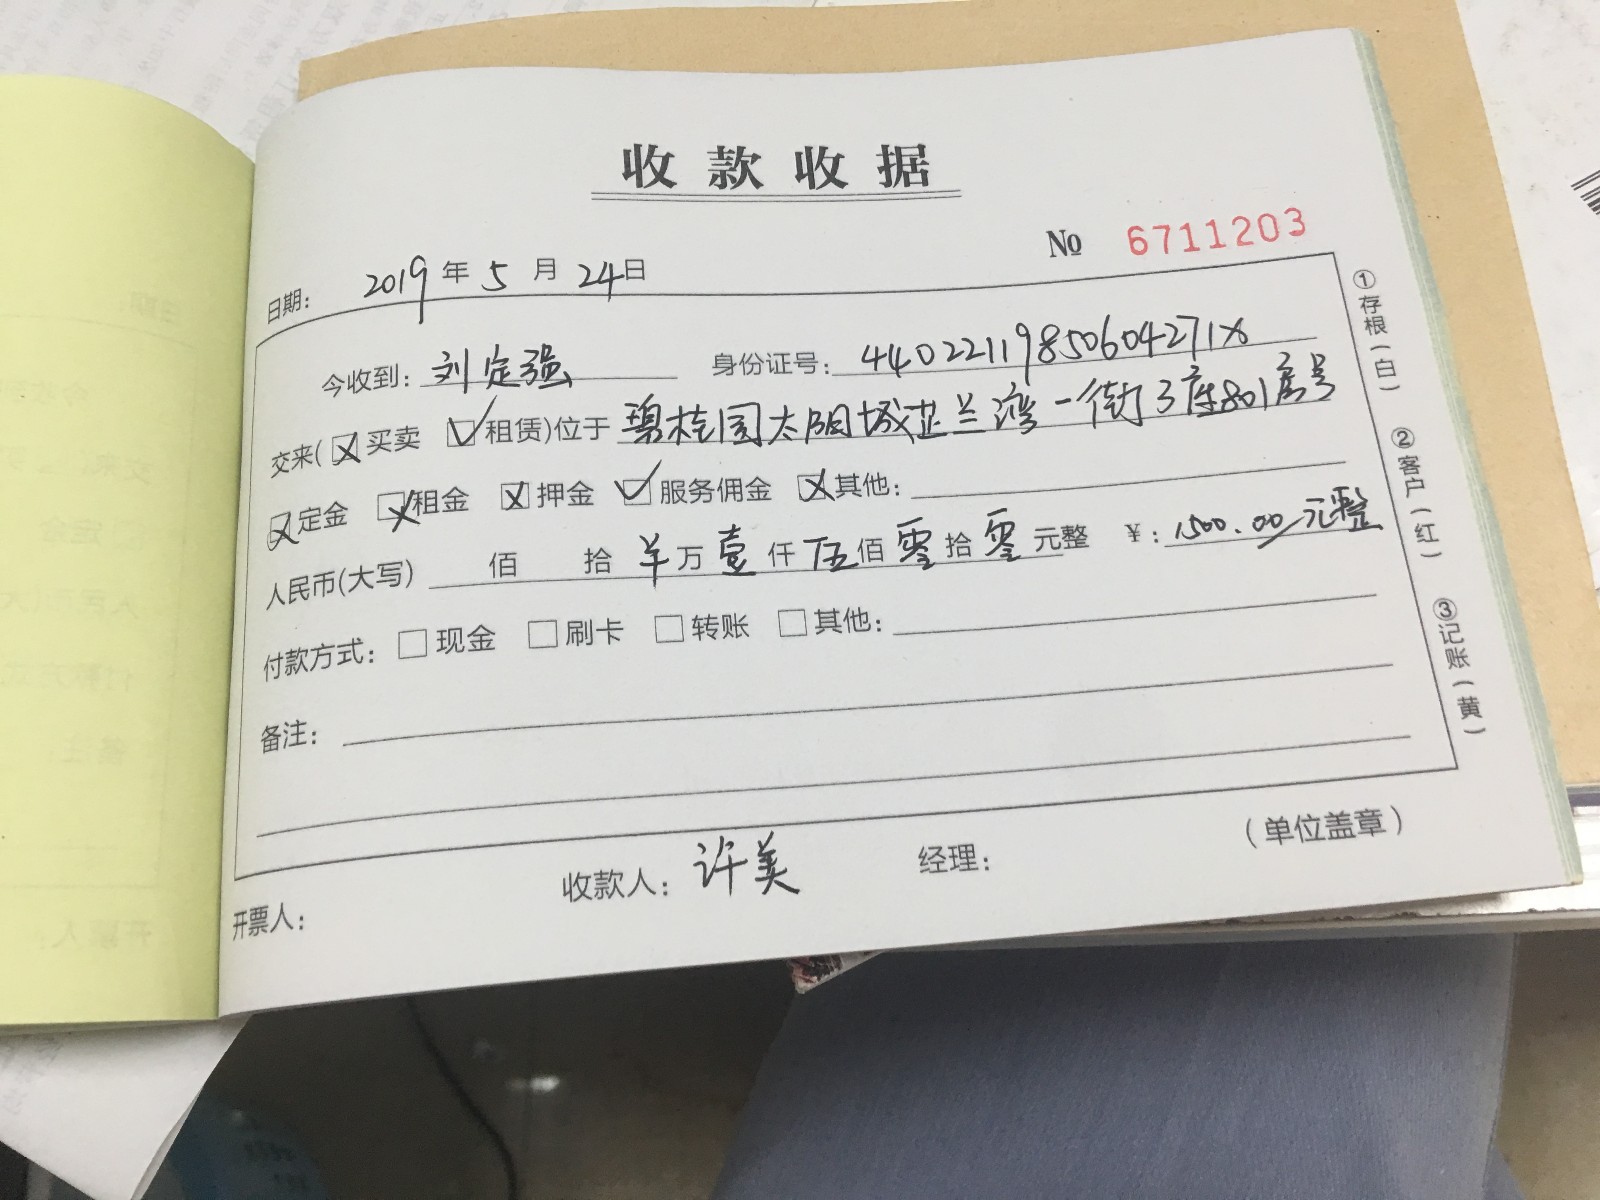 收款收据
No 6711203
日期: 2019年5月24日
今收到: 刘定强 身份证号: 44022119850604271X
交来(☒买卖 ☑租赁)位于 碧桂园太阳城芷兰湾一街3座801房号
☒定金 ☒租金 ☒押金 ☑服务佣金 ☒其他:
人民币(大写) 佰 拾 羊万壹仟伍佰零拾零元整 ¥: 1500.00元整
付款方式: □现金 □刷卡 □转账 □其他:
备注:
(单位盖章)
开票人: 收款人: 许美 经理:
①存根(白)
②客户(红)
③记账(黄)